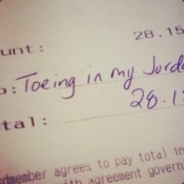 unt: 28.15
p: Toeing in my Jorda
28.1
tal:
rdmember agrees to pay total in
th agreement govern